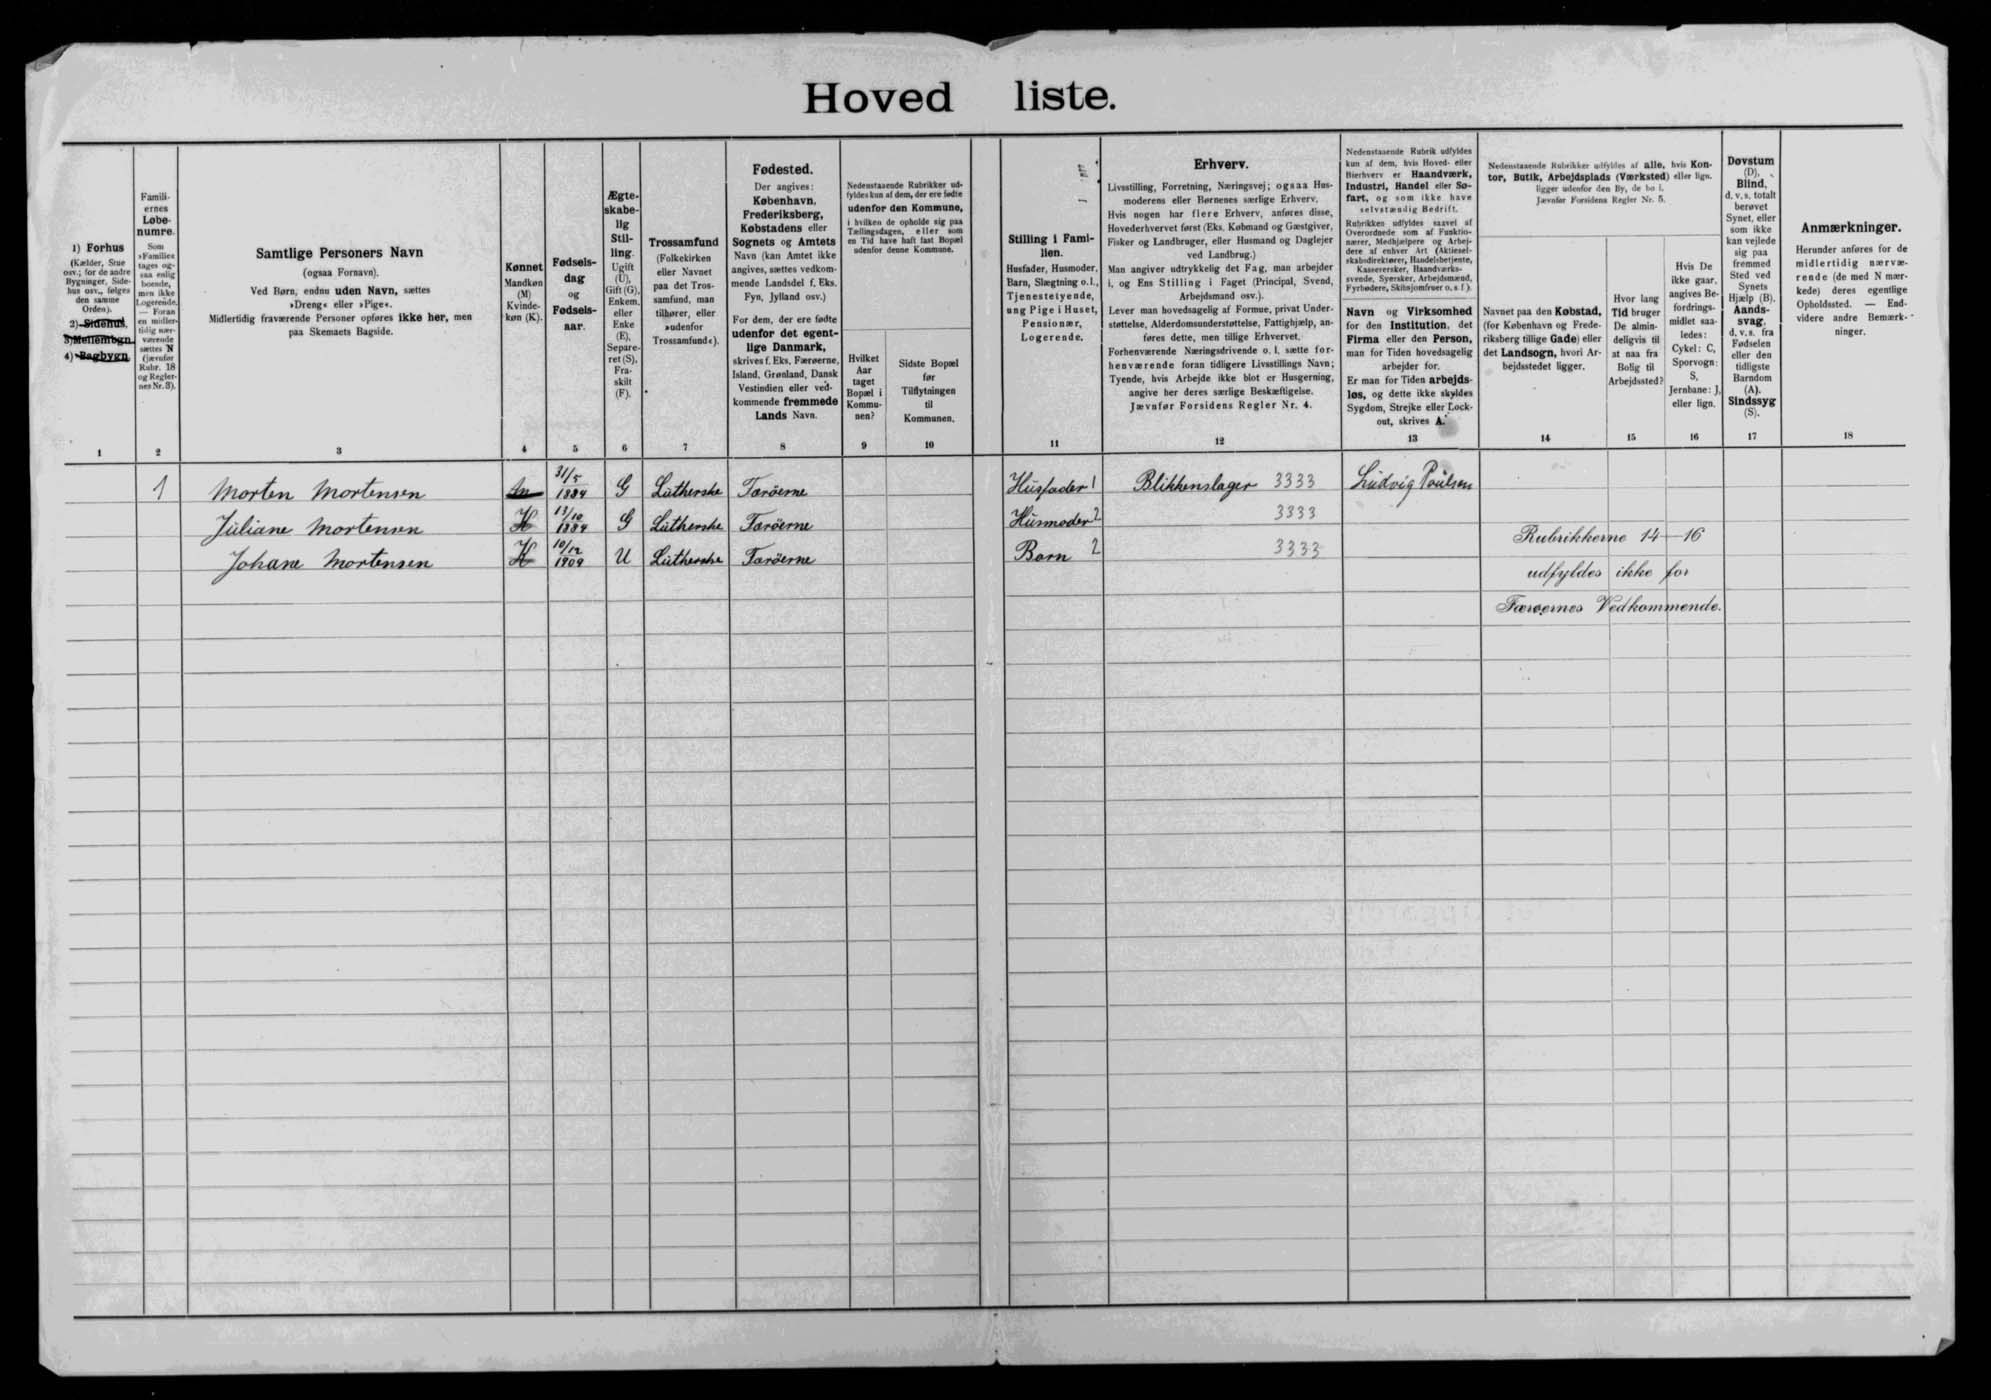 Hoved liste.
1) Forhus
(Kælder, Stue
osv.; for de andre
Bygninger, Side-
hus osv., følges
den samme
Orden).
2) Sidehus.
3) Mellembgn.
4) Bagbygn.
1
Famili-
ernes
Løbe-
numre.
Som
»Familie«
tages og-
saa enlig
boende,
men ikke
Logerende.
— Foran
en midler-
tidig nær-
værende
sættes N
(jævnfør
Rubr. 18
og Regler-
nes Nr. 3).
2
Samtlige Personers Navn
(ogsaa Fornavn).
Ved Børn, endnu uden Navn, sættes
»Dreng« eller »Pige«.
Midlertidig fraværende Personer opføres ikke her, men
paa Skemaets Bagside.
3
Kønnet
Mandkøn
(M)
Kvinde-
køn (K).
4
Fødsels-
dag
og
Fødsels-
aar.
5
Ægte-
skabe-
lig
Stil-
ling.
Ugift
(U),
Gift (G),
Enkem.
eller
Enke
(E),
Separe-
ret (S),
Fra-
skilt
(F).
6
Trossamfund
(Folkekirken
eller Navnet
paa det Tros-
samfund, man
tilhører, eller
»udenfor
Trossamfund«).
7
Fødested.
Der angives:
København,
Frederiksberg,
Købstadens eller
Sognets og Amtets
Navn (kan Amtet ikke
angives, sættes vedkom-
mende Landsdel f. Eks.
Fyn, Jylland osv.)
For dem, der ere fødte
udenfor det egent-
lige Danmark,
skrives f. Eks. Færøerne,
Island, Grønland, Dansk
Vestindien eller ved-
kommende fremmede
Lands Navn.
8
Nedenstaaende Rubrikker ud-
fyldes kun af dem, der ere fødte
udenfor den Kommune,
i hvilken de opholde sig paa
Tællingsdagen, eller som
en Tid have haft fast Bopæl
udenfor denne Kommune.
Hvilket
Aar
taget
Bopæl i
Kommu-
nen?
9
Sidste Bopæl
før
Tilflytningen
til
Kommunen.
10
Stilling i Fami-
lien.
Husfader, Husmoder,
Barn, Slægtning o.l.,
Tjenestetyende,
ung Pige i Huset,
Pensionær,
Logerende.
11
Erhverv.
Livsstilling, Forretning, Næringsvej; ogsaa Hus-
moderens eller Børnenes særlige Erhverv.
Hvis nogen har flere Erhverv, anføres disse,
Hovederhvervet først (Eks. Købmand og Gæstgiver,
Fisker og Landbruger, eller Husmand og Daglejer
ved Landbrug.)
Man angiver udtrykkelig det Fag, man arbejder
i, og Ens Stilling i Faget (Principal, Svend,
Arbejdsmand osv.).
Lever man hovedsagelig af Formue, privat Under-
støttelse, Alderdomsunderstøttelse, Fattighjælp, an-
føres dette, men tillige Erhvervet.
Forhenværende Næringsdrivende o. l. sætte for-
henværende foran tidligere Livsstillings Navn;
Tyende, hvis Arbejde ikke blot er Husgerning,
angive her deres særlige Beskæftigelse.
Jævnfør Forsidens Regler Nr. 4.
12
Nedenstaaende Rubrik udfyldes
kun af dem, hvis Hoved- eller
Bierhverv er Haandværk,
Industri, Handel eller Sø-
fart, og som ikke have
selvstændig Bedrift.
Rubrikken udfyldes saavel af
Overordnede som af Funktio-
nærer, Medhjælpere og Arbej-
dere af enhver Art (Aktiesel-
skabsdirektører, Handelsbetjente,
Kassererskerr, Haandværks-
svende, Syersker, Arbejdsmænd,
Fyrbødere, Skibsjomfruer o. s. f.).
Navn og Virksomhed
for den Institution, det
Firma eller den Person,
man for Tiden hovedsagelig
arbejder for.
Er man for Tiden arbejds-
løs, og dette ikke skyldes
Sygdom, Strejke eller Lock-
out, skrives A.
13
Nedenstaaende Rubrikker udfyldes af alle, hvis Kon-
tor, Butik, Arbejdsplads (Værksted) eller lign.
ligger udenfor den By, de bo i.
Jævnfør Forsidens Regler Nr. 5.
Navnet paa den Købstad,
(for København og Frede-
riksberg tillige Gade) eller
det Landsogn, hvori Ar-
bejdsstedet ligger.
14
Hvor lang
Tid bruger
De almin-
deligvis til
at naa fra
Bolig til
Arbejdssted?
15
Hvis De
ikke gaar,
angives Be-
fordrings-
midlet saa-
ledes:
Cykel: C,
Sporvogn:
S,
Jernbane: J,
eller lign.
16
Døvstum
(D),
Blind,
d. v. s. totalt
berøvet
Synet, eller
som ikke
kan vejlede
sig paa
fremmed
Sted ved
Synets
Hjælp (B).
Aands-
svag,
d. v. s. fra
Fødselen
eller den
tidligste
Barndom
(A).
Sindssyg
(S).
17
Anmærkninger.
Herunder anføres for de
midlertidig nærvæ-
rende (de med N mær-
kede) deres egentlige
Opholdssted. — End-
videre andre Bemærk-
ninger.
18
1 Morten Mortensen M 31/5 1884 G Lutherske Færöerne Husfader 1 Blikkenslager 3333 Ludvig Poulsen
Juliane Mortensen K 13/10 1884 G Lutherske Færöerne Husmoder 2 3333
Johane Mortensen K 10/12 1909 U Lutherske Færöerne Barn 2 3333
Rubrikkerne 14-16
udfyldes ikke for
Færøernes Vedkommende.